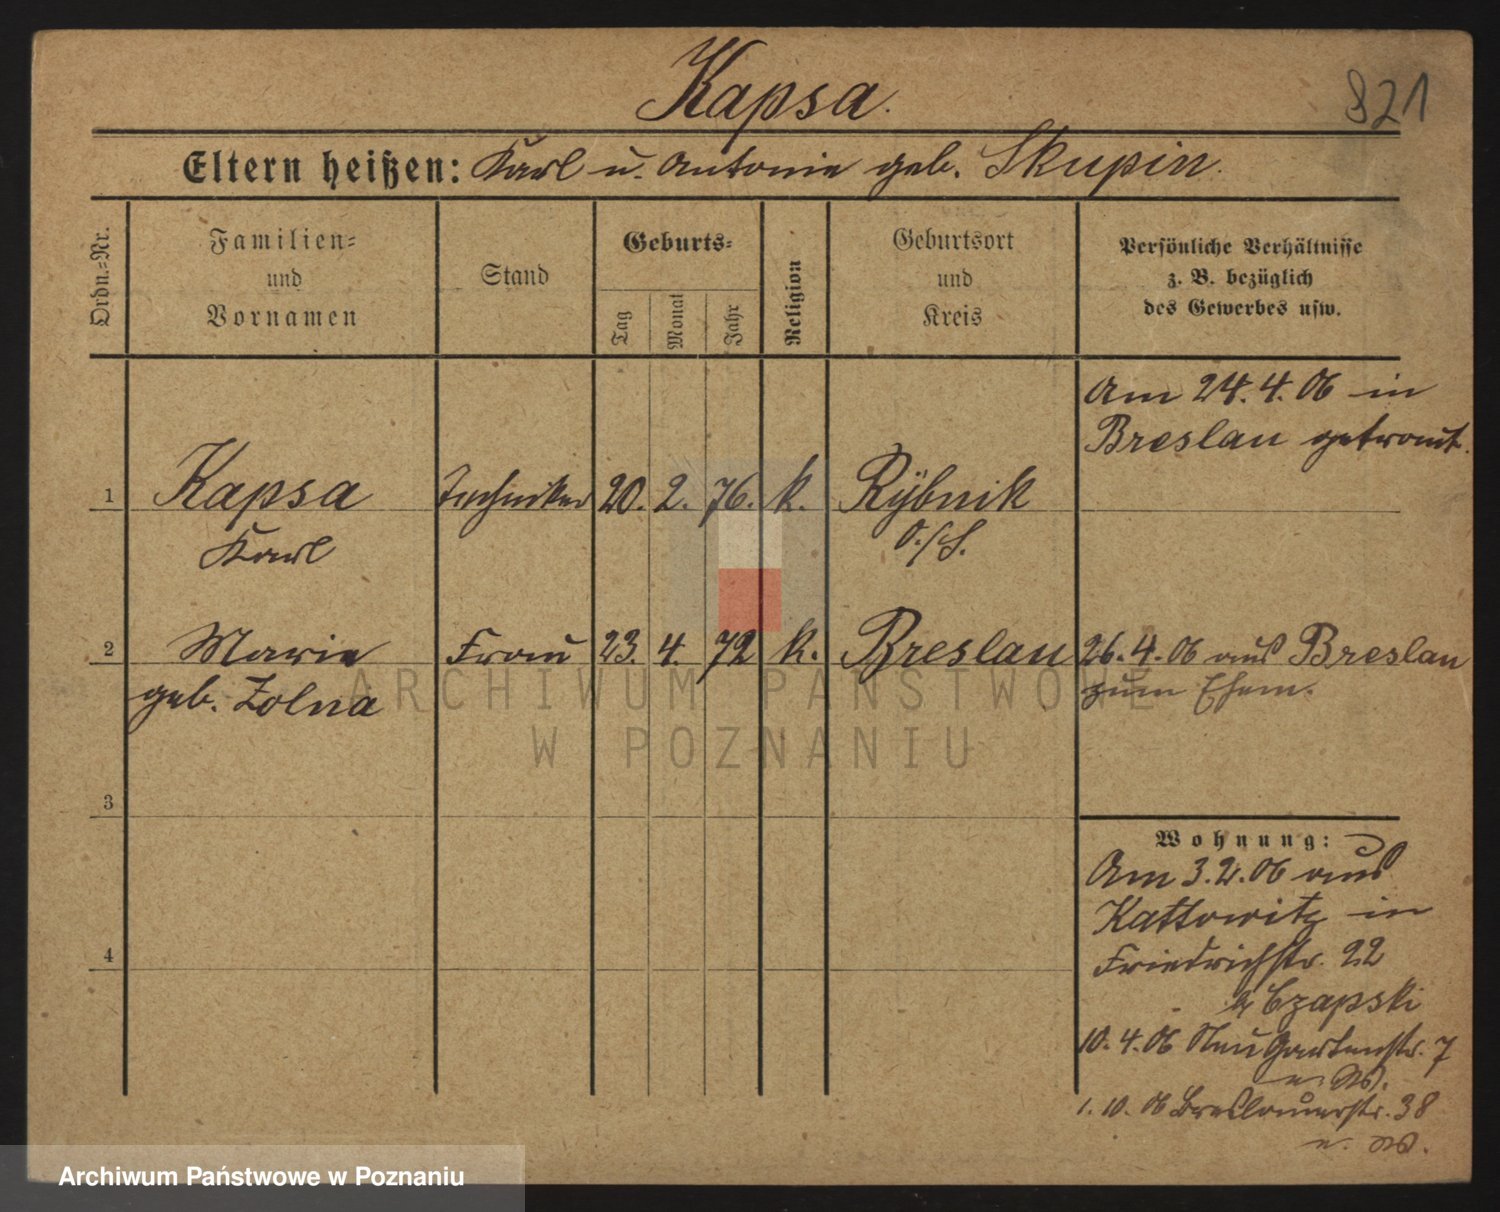 Kapsa.
821
Eltern heißen: Karl u. Antonie geb. Skupin.
Ordn.-Nr.
Familien-
und
Vornamen
Stand
Geburts-
Tag
Monat
Jahr
Religion
Geburtsort
und
Kreis
Persönliche Verhältnisse
z. B. bezüglich
des Gewerbes usw.
Am 24. 4. 06 in
Breslau getraut.
1 Kapsa Techniker 20. 2. 76. k. Rybnik
Karl O./S.
2 Marie Frau 23. 4. 72 k. Breslau 26. 4. 06 aus Breslau
geb. Zolna zum Ehem.
3
Wohnung:
Am 3. 2. 06 aus
Kattowitz in
4 Friedrichstr. 22
b/ Czapski
10. 4. 06 Neu Gartenstr. 7
u. W.
1. 10. 06 Breslauerstr. 38
u. W.
ARCHIWUM PAŃSTWOWE
W POZNANIU
Archiwum Państwowe w Poznaniu